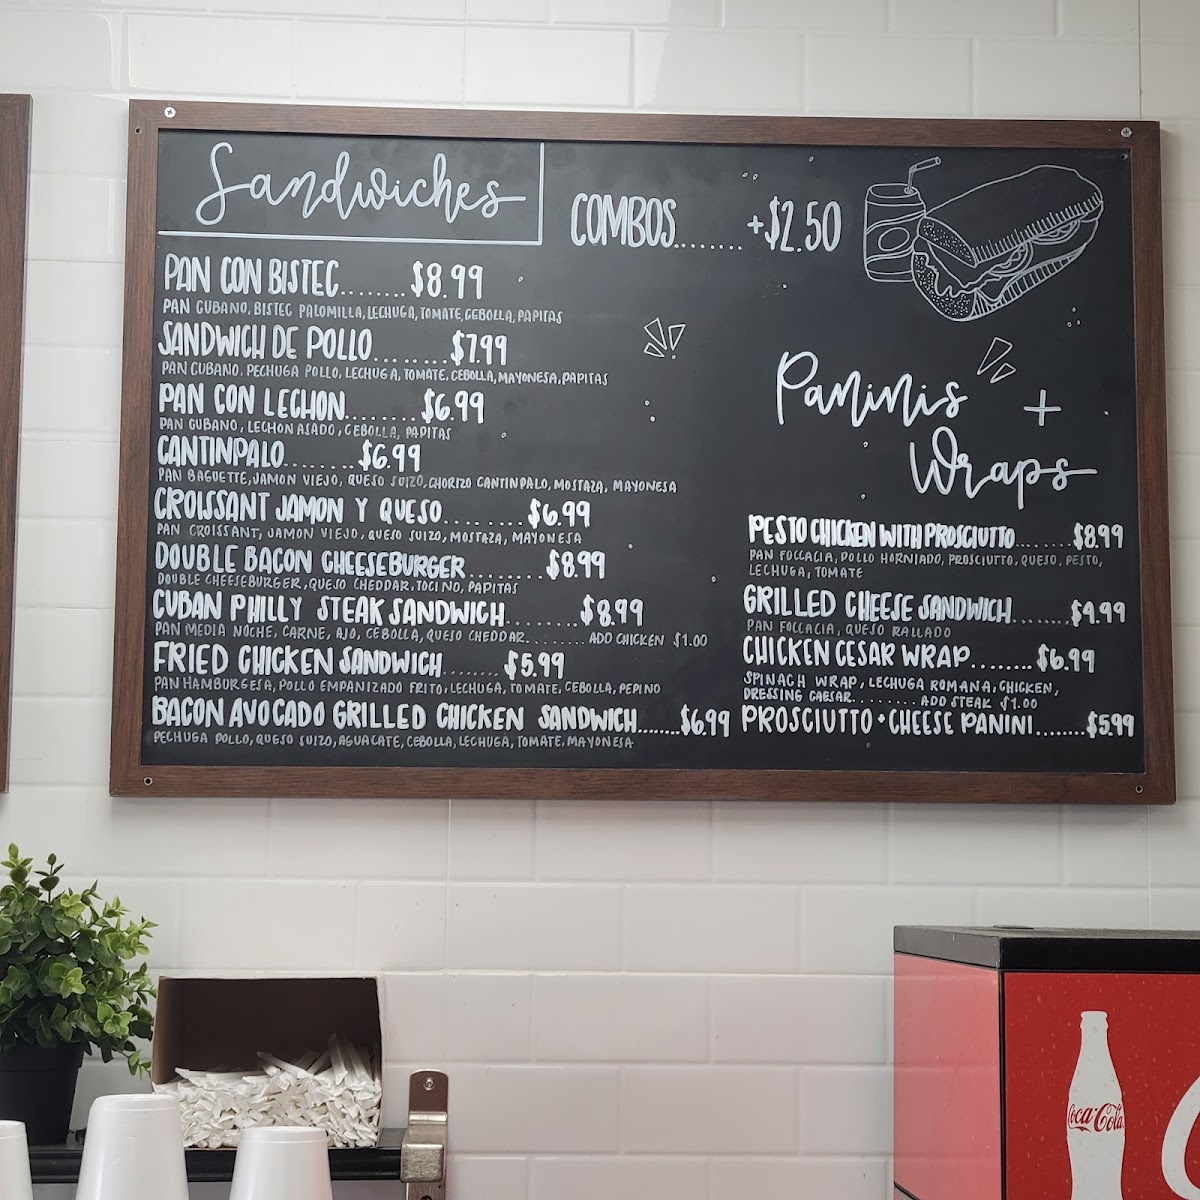 Sandwiches
COMBOS....... +$2.50
PAN CON BISTEC........$8.99
PAN CUBANO, BISTEC PALOMILLA, LECHUGA, TOMATE, CEBOLLA, PAPITAS
SANDWICH DE POLLO.........$7.99
PAN CUBANO, PECHUGA POLLO, LECHUGA, TOMATE, CEBOLLA, MAYONESA, PAPITAS
PAN CON LECHON........$6.99
PAN CUBANO, LECHON ASADO, CEBOLLA, PAPITAS
CANTINPALO........$6.99
PAN BAGUETTE, JAMON VIEJO, QUESO SUIZO, CHORIZO CANTINPALO, MOSTAZA, MAYONESA
CROISSANT JAMON Y QUESO.........$6.99
PAN CROISSANT, JAMON VIEJO, QUESO SUIZO, MOSTAZA, MAYONESA
DOUBLE BACON CHEESEBURGER........$8.99
DOUBLE CHEESEBURGER, QUESO CHEDDAR, TOCINO, PAPITAS
CUBAN PHILLY STEAK SANDWICH........$8.99
PAN MEDIA NOCHE, CARNE, AJO, CEBOLLA, QUESO CHEDDAR........... ADD CHICKEN $1.00
FRIED CHICKEN SANDWICH........$5.99
PAN HAMBURGESA, POLLO EMPANIZADO FRITO, LECHUGA, TOMATE, CEBOLLA, PEPINO
BACON AVOCADO GRILLED CHICKEN SANDWICH.......$6.99
PECHUGA POLLO, QUESO SUIZO, AGUACATE, CEBOLLA, LECHUGA, TOMATE, MAYONESA
Paninis +
Wraps
PESTO CHICKEN WITH PROSCIUTTO........$8.99
PAN FOCCACIA, POLLO HORNIADO, PROSCIUTTO, QUESO, PESTO,
LECHUGA, TOMATE
GRILLED CHEESE SANDWICH........$4.99
PAN FOCCACIA, QUESO RALLADO
CHICKEN CESAR WRAP........$6.99
SPINACH WRAP, LECHUGA ROMANA, CHICKEN,
DRESSING CAESAR.......... ADD STEAK $1.00
PROSCIUTTO + CHEESE PANINI........$5.99
Coca-Cola